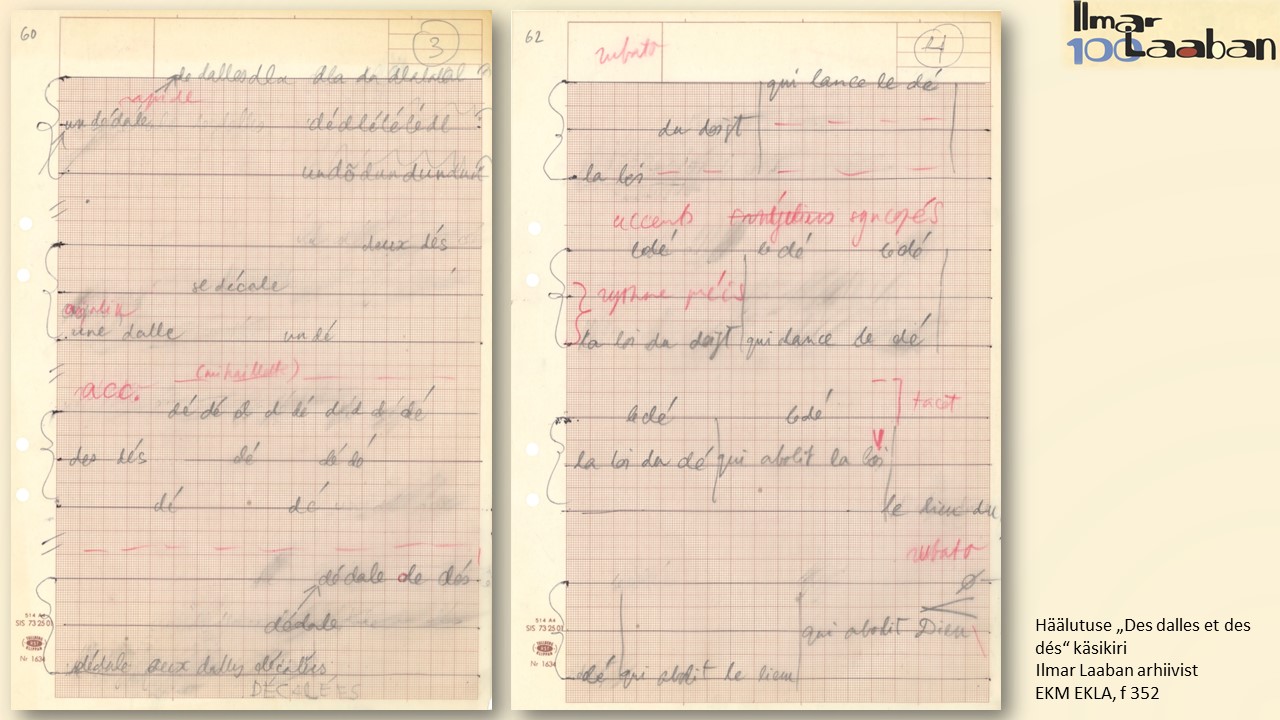 60
3
de dallesdla dla da dlatatal
rapide
un dédale dédlélélédl
undõdundundun
deux dés
se décale
une dalle un dé
(mitraillette)
acc.
dé dé d d dé dédd dé dé
des dés dé dé dé
dé dé
dédale de dés
dédale
514 A4
SIS 73 25 01
Nr 1634
dédale aux dalles décalées
DÉCALÉES
62
rubato
4
qui lance le dé
du doigt
la loi
accents syncopés
le dé le dé le dé
rythme précis
la loi du doigt qui lance le dé
le dé le dé
tacet
la loi du dé qui abolit la loi
le lieu du
rubato
qui abolit Dieu
514 A4
SIS 73 25 01
Nr 1634
dé qui abolit le lieu
Ilmar
100 Laaban
Häälutuse „Des dalles et des
dés“ käsikiri
Ilmar Laaban arhiivist
EKM EKLA, f 352